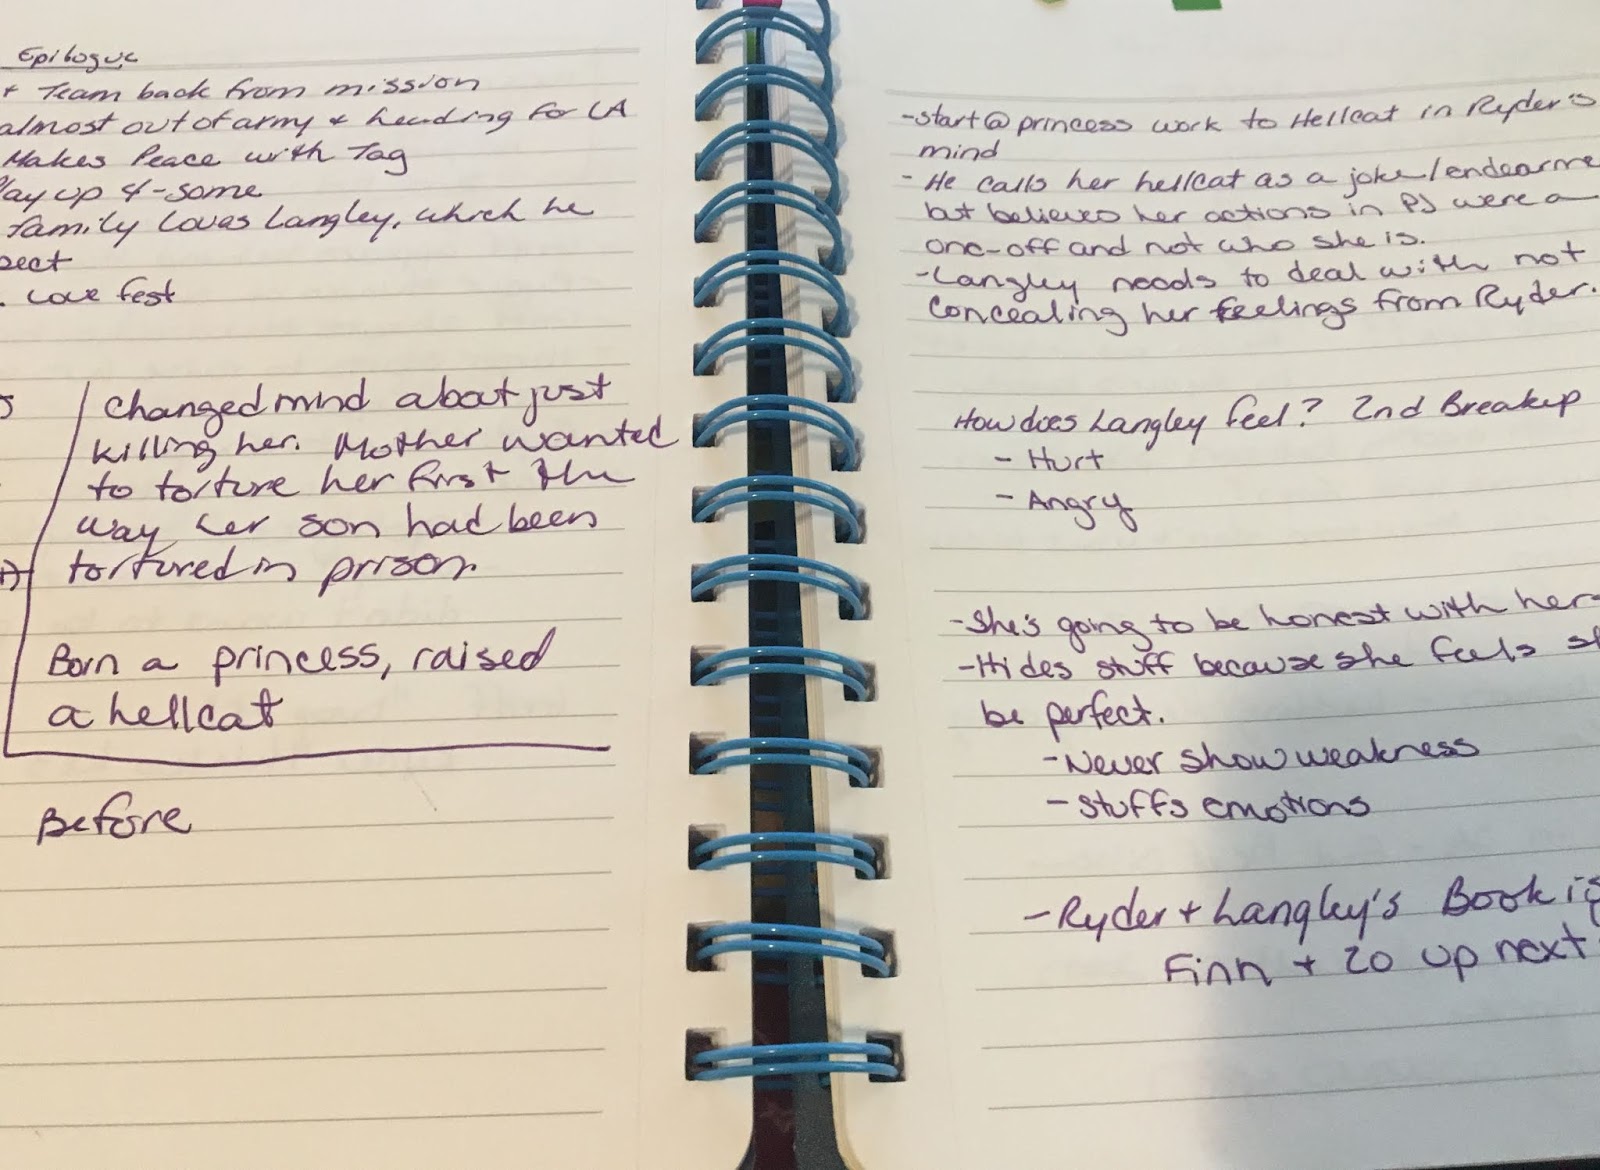 Epilogue
+ Team back from mission
almost out of army + heading for LA
Makes Peace with Tag
Play up 4-some
family loves Langley, which he
pect
. Love fest
changed mind about just
killing her. Mother wanted
to torture her first the
way her son had been
tortured in prison.
Born a princess, raised
a hellcat
Before
-start@princess work to Hellcat in Ryder's
mind
- He calls her hellcat as a joke/endearme
but believes her actions in PJ were a
one-off and not who she is.
-Langley needs to deal with not
concealing her feelings from Ryder.
How does Langley feel? 2nd Breakup
- Hurt
- Angry
-She's going to be honest with her
-Hides stuff because she feels sh
be perfect.
-Never show weakness
-Stuffs emotions
-Ryder + Langley's Book is
Finn + Zo up next